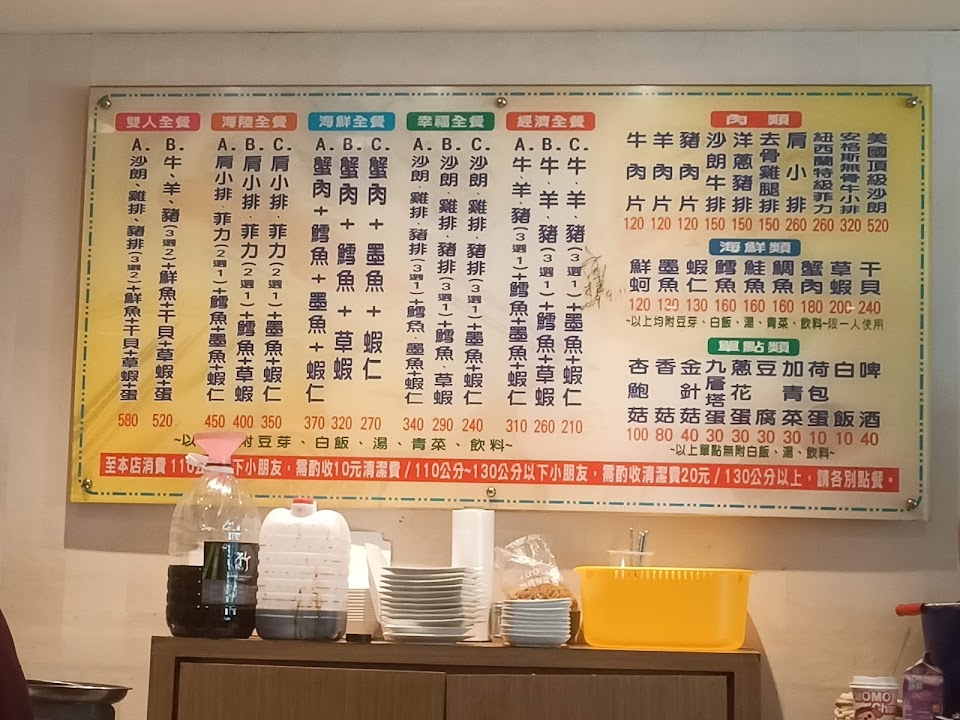 雙人全餐
A. 沙朗、雞排、豬排(3選2)+鮮魚+干貝+草蝦+蛋 580
B. 牛、羊、豬(3選2)+鮮魚+干貝+草蝦+蛋 520
海陸全餐
A. 肩小排·菲力(2選1)+鱈魚+墨魚+蝦仁 450
B. 肩小排·菲力(2選1)+鱈魚+草蝦 400
C. 肩小排·菲力(2選1)+墨魚+蝦仁 350
海鮮全餐
A. 蟹肉+鱈魚+墨魚+蝦仁 370
B. 蟹肉+鱈魚+草蝦 320
C. 蟹肉+墨魚+蝦仁 270
幸福全餐
A. 沙朗·雞排·豬排(3選1)+鱈魚·墨魚+蝦仁 340
B. 沙朗·雞排·豬排(3選1)+鱈魚·草蝦 290
C. 沙朗·雞排·豬排(3選1)+墨魚+蝦仁 240
經濟全餐
A. 牛·羊·豬(3選1)+鱈魚+墨魚+蝦仁 310
B. 牛·羊·豬(3選1)+鱈魚+草蝦 260
C. 牛·羊·豬(3選1)+墨魚+蝦仁 210
~以附豆芽、白飯、湯、青菜、飲料~
肉類
牛肉片 120
羊肉片 120
豬肉片 120
沙朗牛排 150
洋蔥豬排 150
去骨雞腿排 150
肩小排 260
紐西蘭特級菲力 260
安格斯無骨牛小排 320
美國頂級沙朗 520
海鮮類
鮮蚵 120
墨魚 130
蝦仁 130
鱈魚 160
鮭魚 160
鯛魚 160
蟹肉 180
草蝦 200
干貝 240
~以上均附豆芽、白飯、湯、青菜、飲料~限一人使用
單點類
杏鮑菇 100
香菇 80
金針菇 40
九層塔蛋 30
蔥花蛋 30
豆腐 30
加青菜 30
荷包蛋 10
白飯 10
啤酒 40
~以上單點無附白飯、湯、飲料~
至本店消費 110下小朋友，需酌收10元清潔費 / 110公分~130公分以下小朋友，需酌收清潔費20元 / 130公分以上，請各別點餐。
竹
MOMO